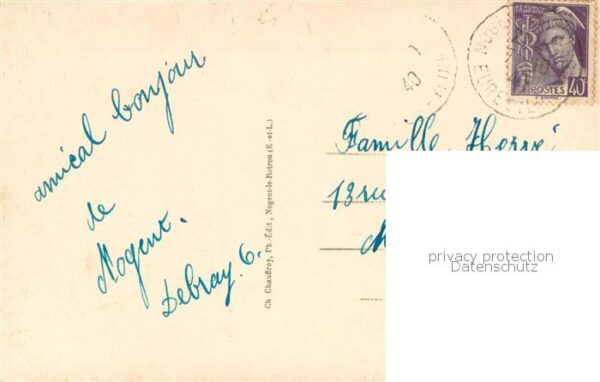 amical bonjour
de
Nogent.
Debray. G.
Ch. Chauffroy, Ph.-Édit., Nogent-le-Rotrou (E.-et-L.)
40
RÉPUBLIQUE FRANÇAISE
POSTES 40
Famille Hervé
13 ru
privacy protection
Datenschutz